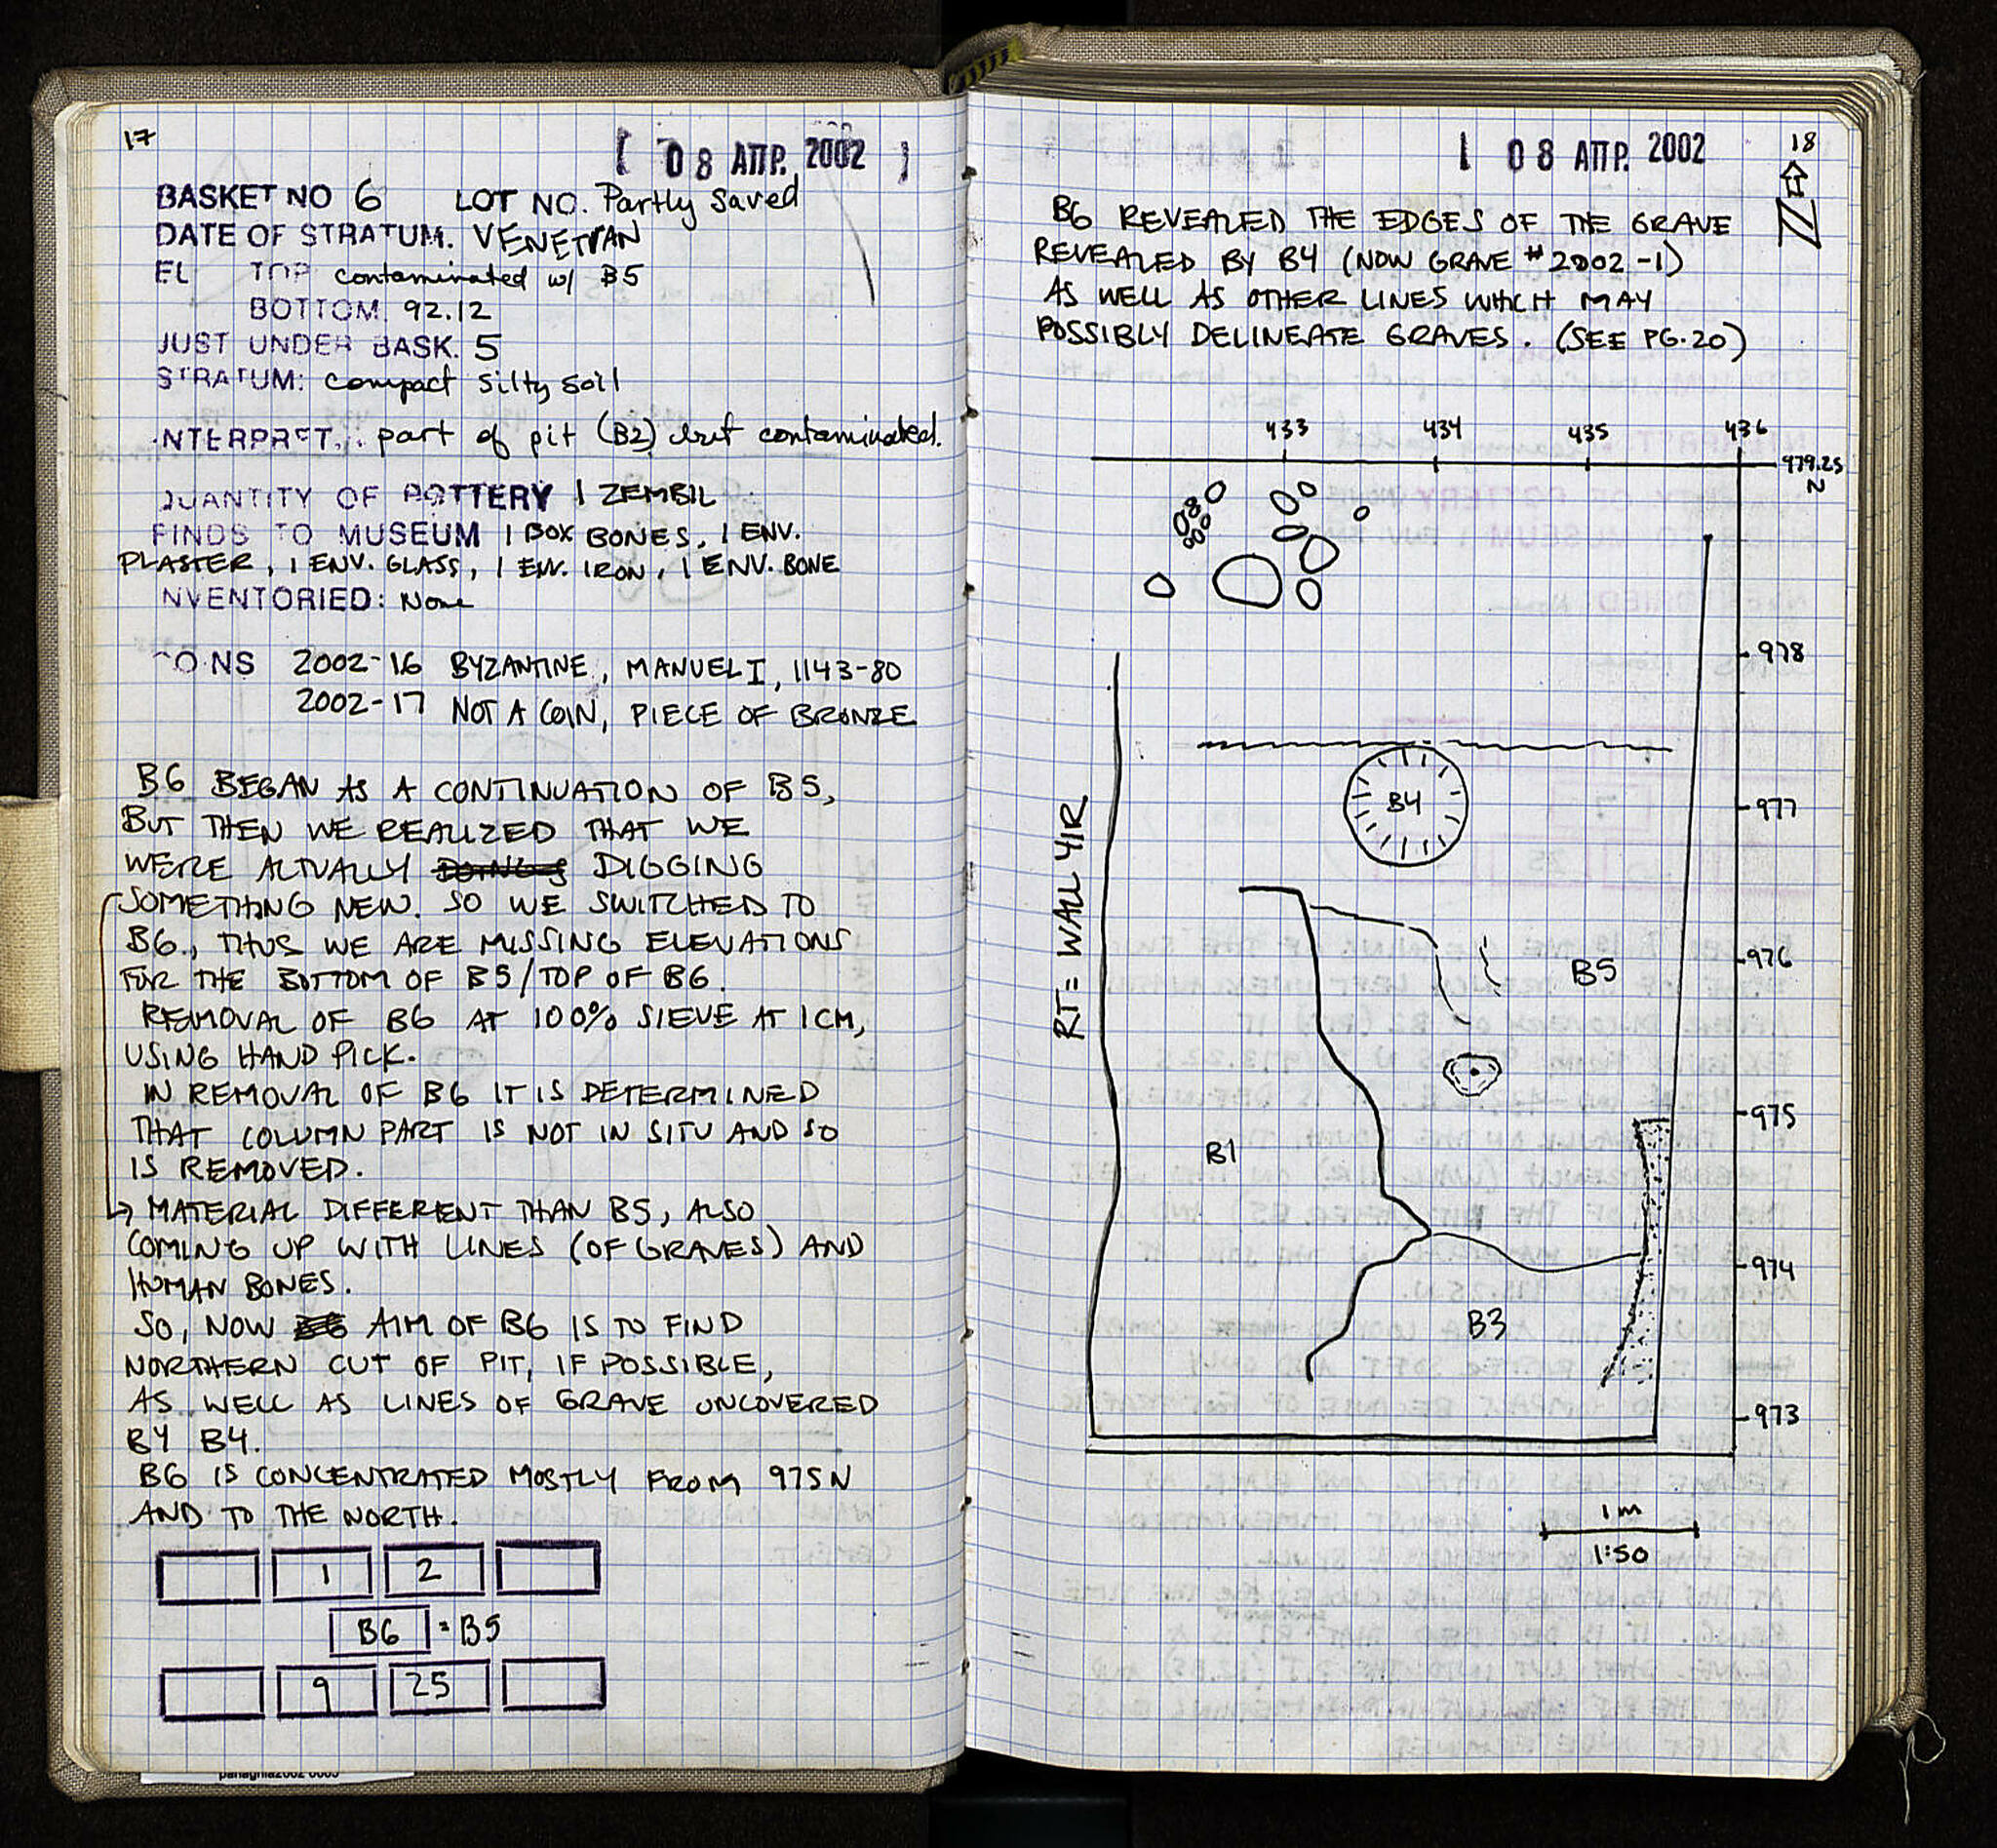 17
[ 08 ΑΠΡ. 2002 ]
BASKET NO 6 LOT NO. Partly Saved
DATE OF STRATUM. VENETIAN
EL TOP contaminated w/ B5
BOTTOM. 92.12
JUST UNDER BASK. 5
STRATUM: compact silty soil
INTERPRET.: part of pit (B2) but contaminated.
QUANTITY OF POTTERY 1 ZEMBIL
FINDS TO MUSEUM 1 BOX BONES, 1 ENV.
PLASTER, 1 ENV. GLASS, 1 ENV. IRON, 1 ENV. BONE
INVENTORIED: None
COINS 2002-16 BYZANTINE, MANUEL I, 1143-80
2002-17 NOT A COIN, PIECE OF BRONZE
B6 BEGAN AS A CONTINUATION OF B5,
BUT THEN WE REALIZED THAT WE
WERE ACTUALLY DIGGING
SOMETHING NEW. SO WE SWITCHED TO
B6., THUS WE ARE MISSING ELEVATIONS
FOR THE BOTTOM OF B5/TOP OF B6.
REMOVAL OF B6 AT 100% SIEVE AT 1CM,
USING HAND PICK.
IN REMOVAL OF B6 IT IS DETERMINED
THAT COLUMN PART IS NOT IN SITU AND SO
IS REMOVED.
→ MATERIAL DIFFERENT THAN B5, ALSO
COMING UP WITH LINES (OF GRAVES) AND
HUMAN BONES.
SO, NOW AIM OF B6 IS TO FIND
NORTHERN CUT OF PIT, IF POSSIBLE,
AS WELL AS LINES OF GRAVE UNCOVERED
BY B4.
B6 IS CONCENTRATED MOSTLY FROM 975N
AND TO THE NORTH.
1 2
B6 = B5
9 25
08 ΑΠΡ. 2002
18
B6 REVEALED THE EDGES OF THE GRAVE
REVEALED BY B4 (NOW GRAVE #2002-1)
AS WELL AS OTHER LINES WHICH MAY
POSSIBLY DELINEATE GRAVES. (SEE PG.20)
433 434 435 436
979.25
N
978
977
B4
RT= WALL YIR
976
B5
975
B1
974
B3
973
1 m
1:50